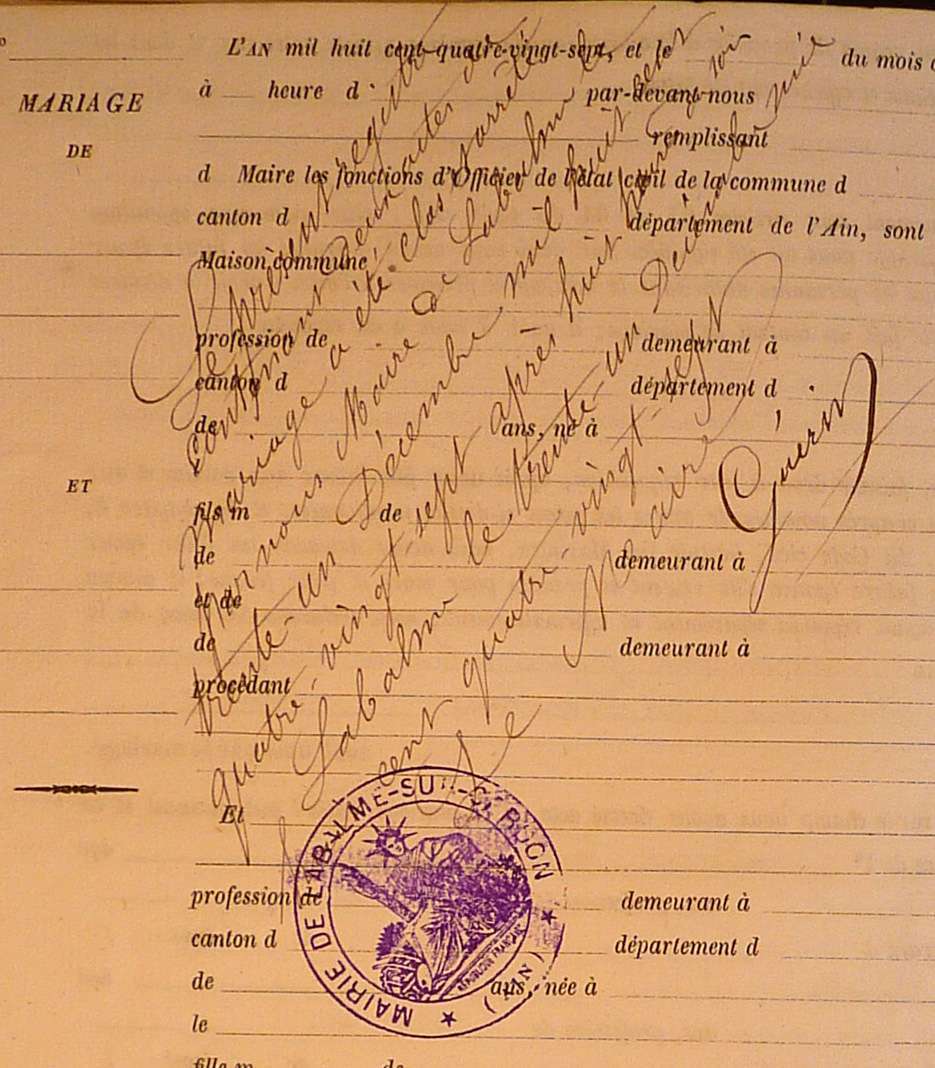 MARIAGE
DE
ET
L'AN mil huit cent quatre-vingt-sept, et le du mois d
à heure d par-devant nous
remplissant
d Maire les fonctions d'Officier de l'état civil de la commune d
canton d département de l'Ain, sont
Maison commune
profession de demeurant à
canton d département d
de ans, né à
fils m de
de demeurant à
et de
de demeurant à
procédant
Et
profession de demeurant à
canton d département d
de ans, née à
le
fille m de
Le présent registre
contenant deux actes de
Mariage a été clos et arrêté
par nous Maire de Labalme le
trente-un Décembre mil huit cent
quatre-vingt sept après huit heures du soir
Labalme le trente-un Décembre mil huit
cent quatre-vingt-sept
Le Maire
Guérin
MAIRIE DE LABALME-SUR-CERDON
(AIN)
RÉPUBLIQUE FRANÇAISE